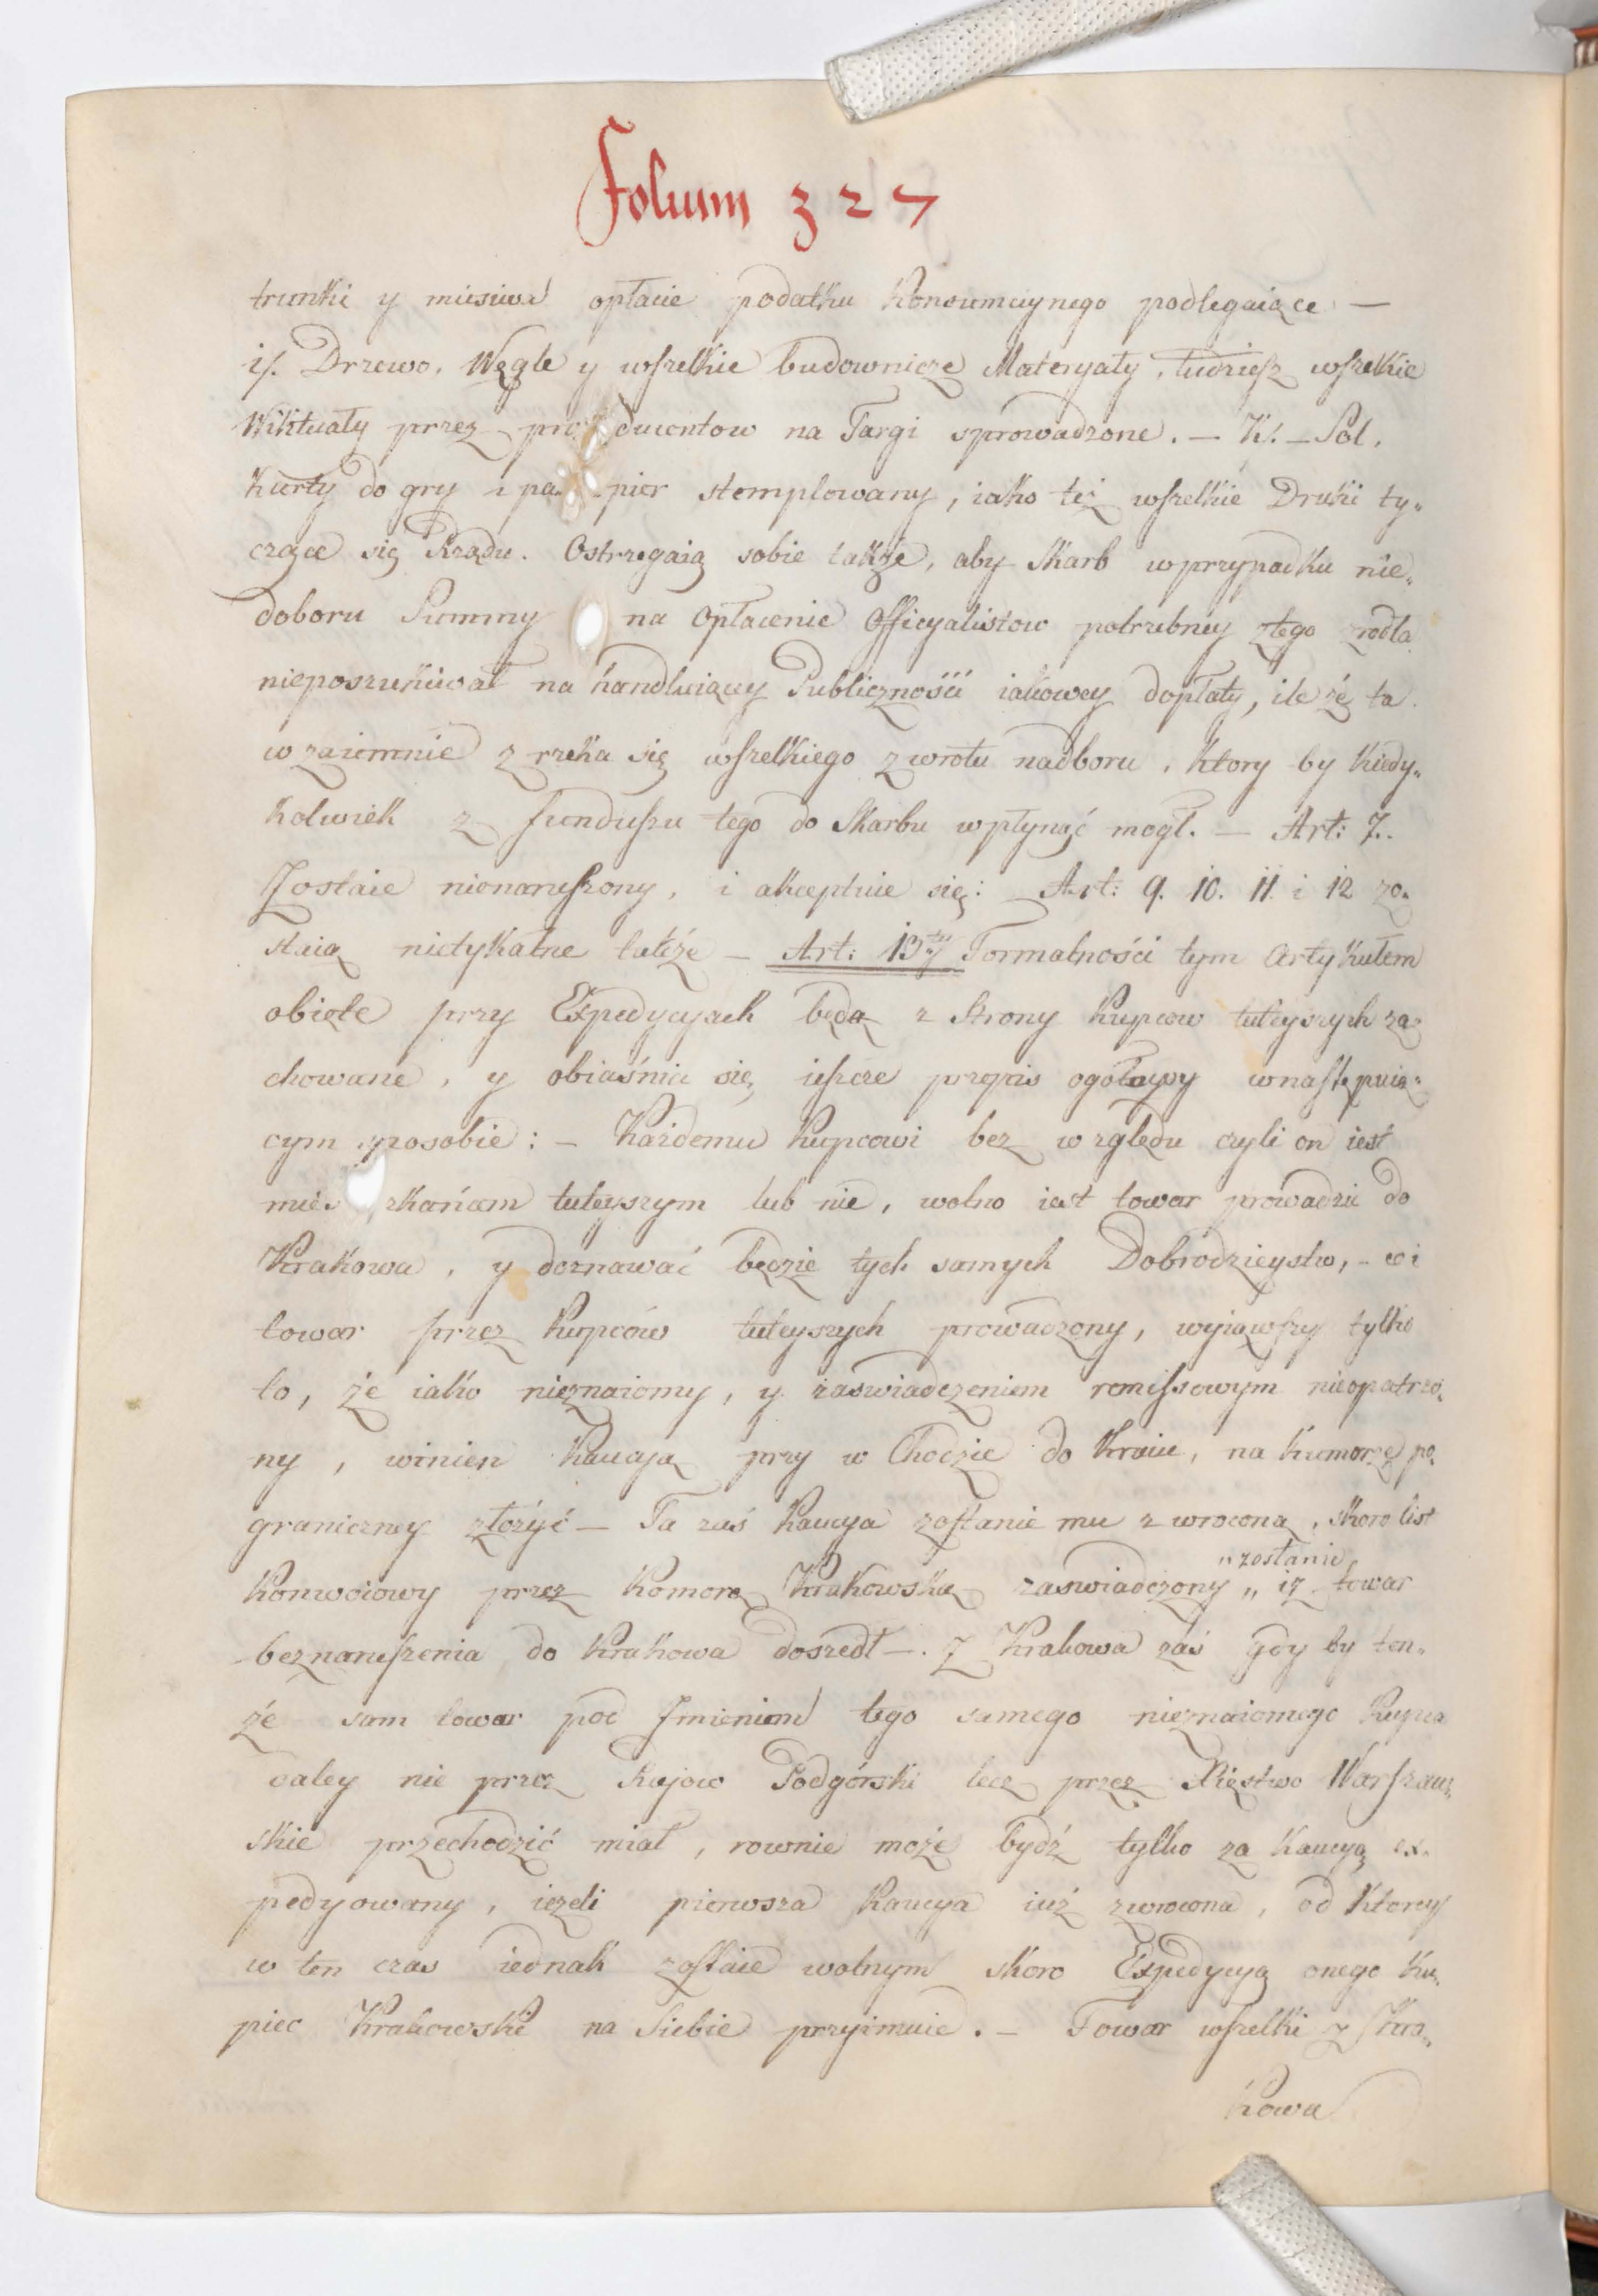 Folium 327
trunki y miesiwa opłacie podatku Konsumcyinego podlegaiące —
i). Drzewo, Węgle y wszelkie budownicze Materyały, tudziesz wszelkie
Wiktuały przez producentow na Targi sprowadzone. — K). — Sól,
Karty do gry i papier stemplowany, iako też wszelkie Druki ty„
czące się Rządu. Ostrzegaią sobie także, aby Skarb w przypadku nie„
doboru Summy na opłacenie Officyalistow potrzebney z tego zrodła
nieposzukiwał na handluiącey Publiczności iakowey dopłaty, ile że ta
wzaiemnie zrzeka się wszelkiego zwrotu nadboru, ktory by kiedy„
kolwiek z funduszu tego do Skarbu wpłynąć mogł. — Art: 7.
Zostaie nienaruszony, i akceptuie się: Art: 9. 10. 11. i 12 zo„
staią nietykalne także — Art: 13ty Formalności tym Artykułem
obięte przy Expedycyach będą z Strony Kupcow tuteyszych za„
chowane, y obiaśnia się ieszcze przepis ogólny w następuią„
cym sposobie: — Każdemu Kupcowi bez względu czyli on iest
mieszkańcem tuteyszym lub nie, wolno iest towar prowadzić do
Krakowa, y doznawać będzie tych samych Dobrodzieystw, — co i
towar przez Kupców tuteyszych prowadzony, wyiąwszy tylko
to, że iako nieznaiomy, y zaswiadczeniem remissowym nieopatrzo„
ny, winien Kaucyą przy wchodzie do Kraiu, na Komorze po„
graniczney złożyć — Ta zaś Kaucya zostanie mu zwrocona, skoro list
Konwoiowy przez Komorę Krakowską zaswiadczony „zostanie„ iż towar
bez naruszenia do Krakowa doszedł —. Z Krakowa zaś gdy by ten„
że sam towar pod Imieniem tego samego nieznaiomego Kupca
daley nie przez Rajow Podgórski lecz przez Xięstwo Warszaw„
skie przechodzić miał, rownie może bydź tylko za Kaucyą ex„
pedyowany, ieżeli pierwsza Kaucya iuż zwrocona, od ktorey
w ten czas iednak zostaie wolnym skoro Expedycyą onego Ku„
piec Krakowski na Siebie przyimuie. — Towar wszelki z Kra„
kowa